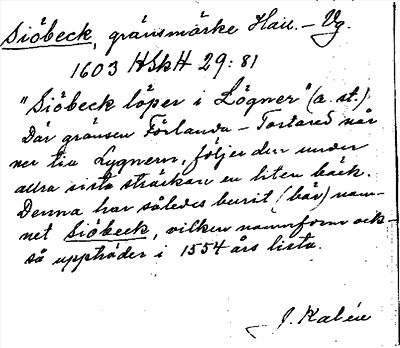 Siöbeck, gränsmärke Hall. – Vg.
1603 HSkH 29:81
"Siöbeck löper i Lögner" (a. st.).
Där gränsen Förlanda – Tostared når
ner till Lygnern, följer den under
allra sista sträckan en liten bäck.
Denna har således burit (bär) nam-
net Siöbeck, vilken namnform ock-
så uppträder i 1554 års lista.
J. Kalén